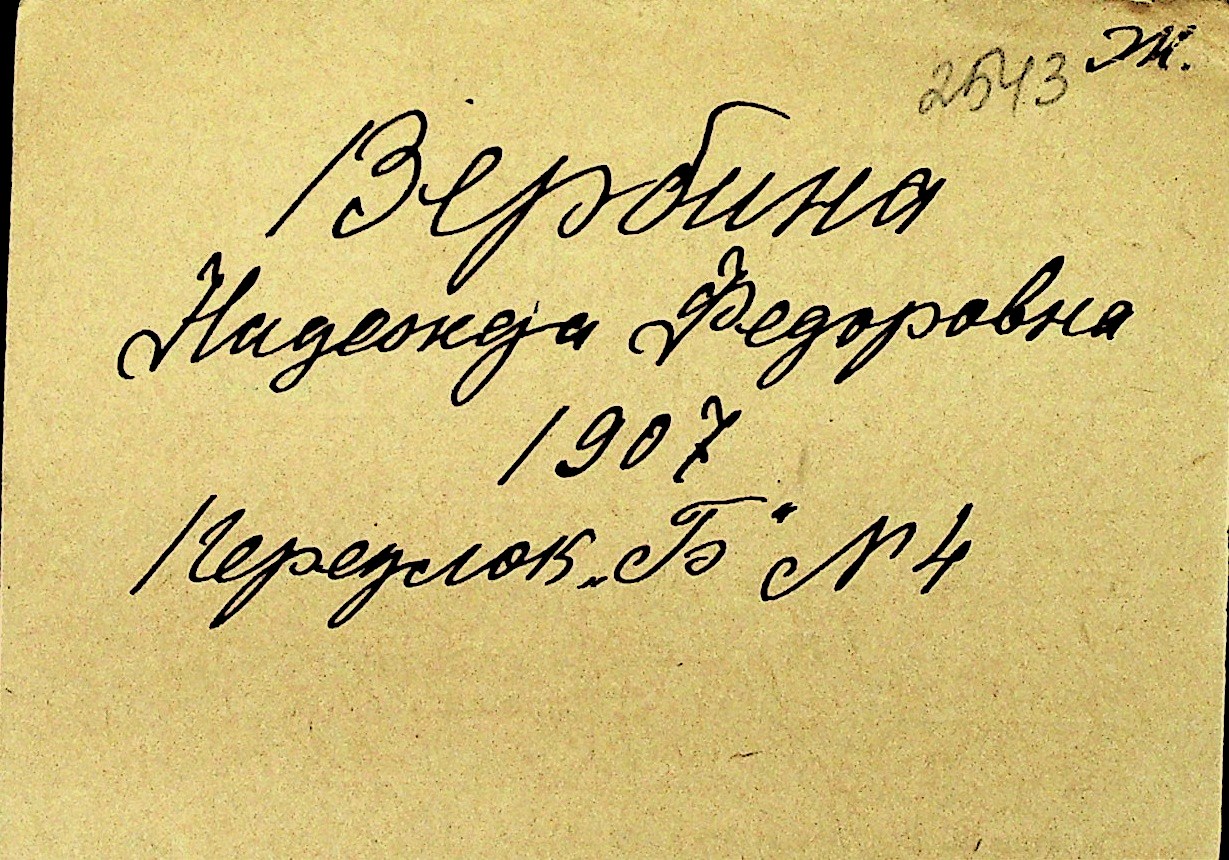 2543 Ж.
Вербина
Надежда Федоровна
1907
Переулок „Б" № 4